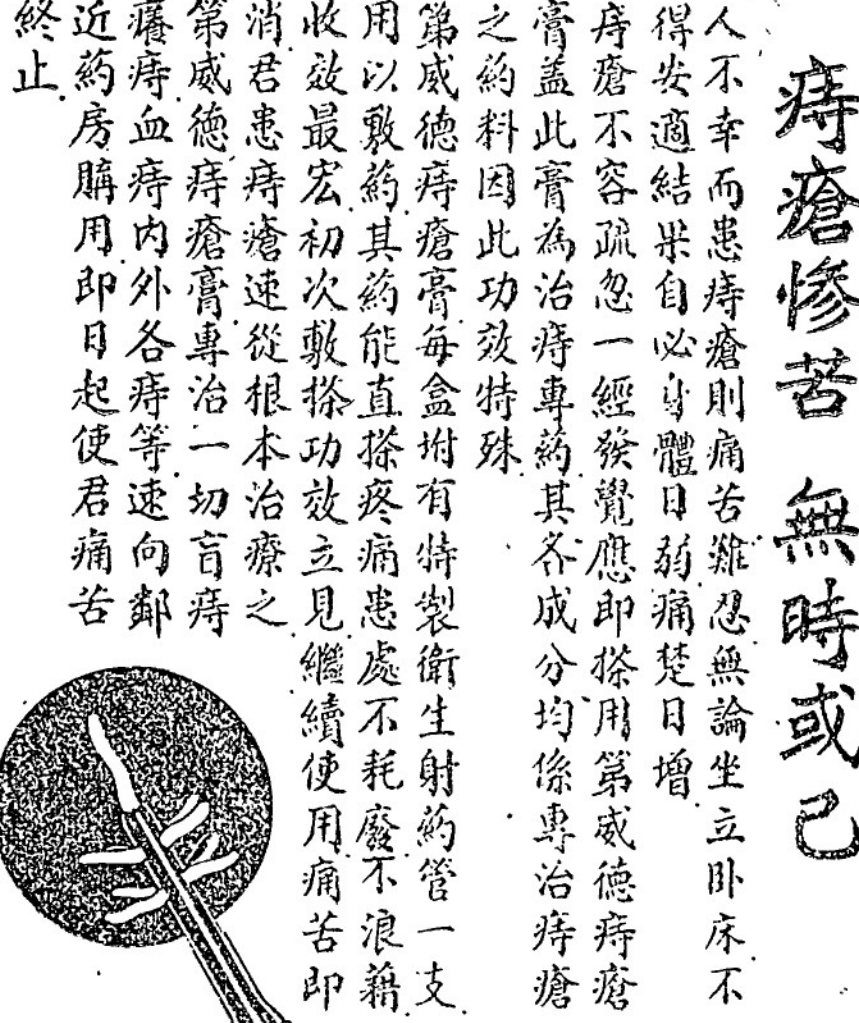 痔瘡慘苦 無時或已
人不幸而患痔瘡則痛苦難忍無論坐立卧床不
得安適結果自必身體日弱痛楚日增
痔瘡不容疏忽一經發覺應即搽用第威德痔瘡
膏盖此膏為治痔專药其各成分均係專治痔瘡
之药料因此功效特殊
第威德痔瘡膏每盒坿有特製衛生射药管一支
用以敷药其药能直搽疼痛患處不耗廢不浪藉
收效最宏初次敷搽功效立見繼續使用痛苦即
消君患痔瘡速從根本治療之
第威德痔瘡膏專治一切盲痔
癢痔血痔內外各痔等速向鄰
近药房購用即日起使君痛苦
終止